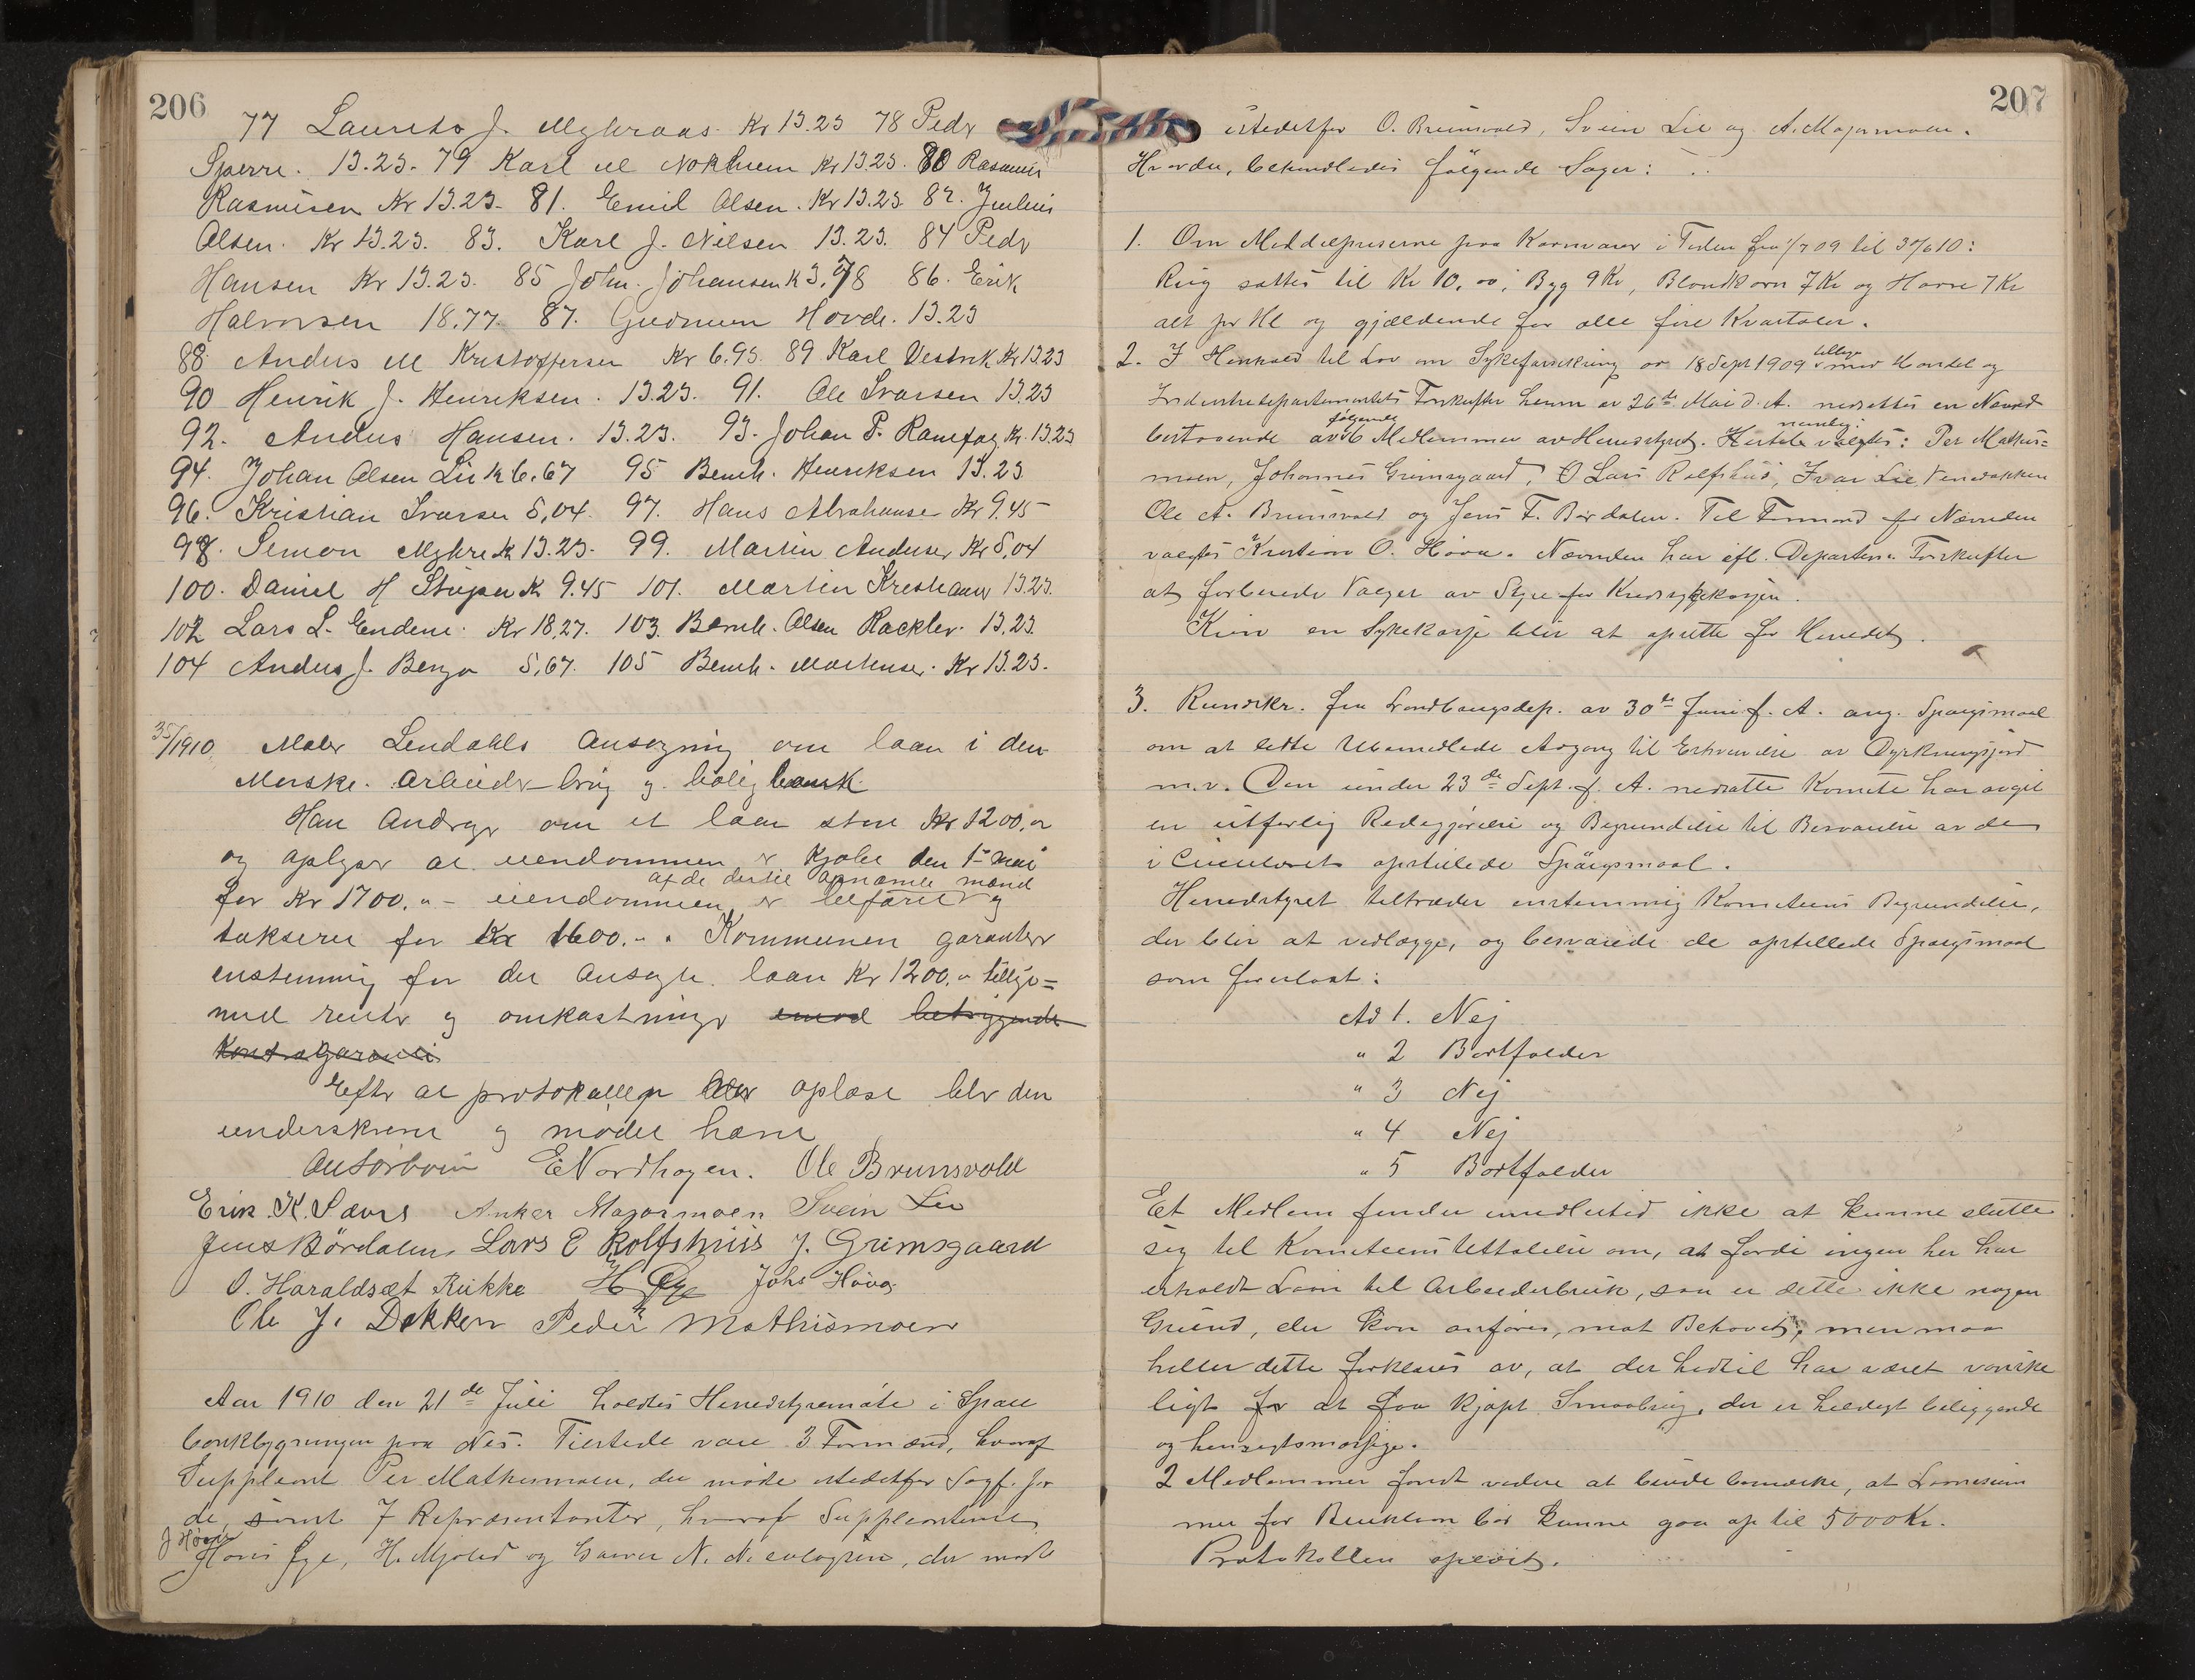 206
77 Laurits J. Myhraas. Kr 13.23 78 Pedr
Sperre. 13.23. 79 Karl M Nokleuem Kr 13.23. 80 Rasmus
Rasmusen Kr 13.23. 81. Emil Olsen. Kr 13.23 82. Julius
Olsen. Kr 13.23. 83. Karl J. Nilsen 13.23. 84 Pedr
Hansen Kr 13.23. 85 John. Johansen K 3,78 86. Erik
Halvorsen 18.77. 87. Gudmun Hovde. 13.23
88 Andus M Kristoffersen Kr 6.93. 89 Karl Vestvik Kr 13.23
90 Henrik J. Henriksen. 13.23. 91. Ole Ivarsen 13.23
92. Andus Hansen. 13.23. 93. Johan P. Kr. 13.23
94. Johan Olsen Lie K 6.67 95 Bernh. Henriksen 13.23
96. Kristian Ivarsen 5,04. 97. Hans Abrahamse Kr 9.45
98. Simon Myhre K 13.23. 99. Martin Anduser Kr 5,04
100. Daniel H K 9.45 101. Martin Kreshaner 13.23.
102 Lars L. Endene. Kr 18,27. 103. Bernh. Olsen Rackler. 13,23.
104 Andus J. Benga 5,67. 105 Bernh. Mortense. Kr 13.23.
35/1910. Maler Lendahls Ansøgning om laan i den
Norske. Arbeider-brug g. boligbank
Han Andrager om et laan stort Kr 1200,-
og oplyser at eiendommen er kjøbt den 1ste mai
af de dertil opnævnte mænd
for Kr 1700.- eiendommen er befaret og
takseret for Kr 1600.-. Kommunen garanterer
enstemmig for det ansøgte laan Kr 1200.- tillige=
med renter og omkostninger imod betryggende
Kontragaranti
Efter at protokollen blev oplæst blev den
underskrevet og mødet hævet
E Nordhagen. Ole Brunsvold
Erik. K. Sævrs Anker Magarmoen Svein Lie
Jens Børdalen Lars E Rolfshuus J. Grimsgaard
O. Haraldsæt Rukke H Øye Johs Høva
Ole J. Dokken Peder Mathismoen
Aar 1910 den 21de Juli holdtes Herredstyremøte i Spare
bankbygningen paa Nes. Tilstede vare 3 Formænd, hvoraf
Suppleant Per Mathismoen, der møtte istedetfor Sogf. for
de, samt 7 Repræsentanter, hvoraf Suppleanterne
J Høva
Hans Øye, H. Mjøled og N. N. der møtte
207
istedetfor O. Brunsvold, Svein Lie og A. Magarmoen.
Hvorda, behandledes følgende Sager:
1. Om Middelpriserne paa Kornvarer i Tiden fra 1/7 09 til 30/6 10:
Rug sattes til Kr 10,00, Byg 9 Kr, Blandkorn 7 Kr og Havre 7 Kr
alt pr Hl og gjældende for alle fire Kvartaler.
tillige
2. I Henhold til Lov om Sykeforsikring av 18 Sept 1909 med Handel og
Industridepartementets Forskrifter herom av 26de Mai d. A. nedsættes en Nævnd
følgende nemlig:
bestaaende av 6 Medlemmer av Herredstyret. Hertil valgtes: Per Mathis=
moen, Johannes Grimsgaard, O Lars Rolfshus, Ivar Lie
Ole A. Brunsvold og Jens F. Børdalen. Til Formand for Nævnden
valgtes Kristian O. Høva. Nævnden har efl. Departem. Forskrifter
at forberede Valget av Styre for Kredssykekassen.
Kun en Sykekasse blir at oprette for Herredet.
3. Rundskr. fra Landbrugsdep. av 30te Juni f. A. ang. Spørgsmaal
om at lette Ubemidlede Adgang til Erhvervelse av Dyrkningsjord
m.v. Den under 23de Sept. f. A. nedsatte Komite har avgit
en utførlig Redegjørelse og Begrundelse til Besvarelse av de
i Circulæret opstillede Spørgsmaal.
Herredstyret tiltræder enstemmig Komiteens Begrundelse,
der blir at vedlægge, og besvarede de opstillede Spørgsmaal
som foreslaat:
Ad 1. Nej
" 2 Bortfalder
" 3 Nej
" 4 Nej
" 5 Bortfalder
Et Medlem finder imidlertid ikke at kunne slutte
sig til Komiteens Uttalelse om, at fordi ingen her har
erholdt Laan til Arbeiderbruk, saa er dette ikke nogen
Grund, der kan anføres, mot Behovet, men maa
heller dette forklares av, at der hidtil har været vanske
ligt for at faa kjøpt Smaabrug, der er heldigt beliggende
og hensigtsmæssige.
2 Medlemmer fandt videre at burde bemerke, at Lånesum
mer for Brukene bør kunne gaa op til 5000 Kr.
Protokollen oplæst.